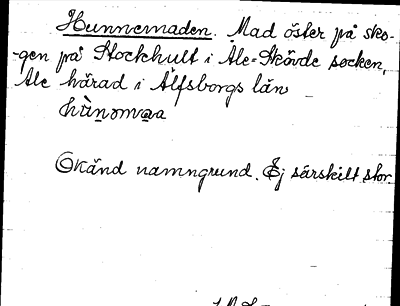 Hunnemaden. Mad öster på sko-
-gen på Stockhult i Ale-Skövde socken,
Ale härad i Älfsborgs län
hùnəmɷa
Okänd namngrund. Ej särskilt stor.